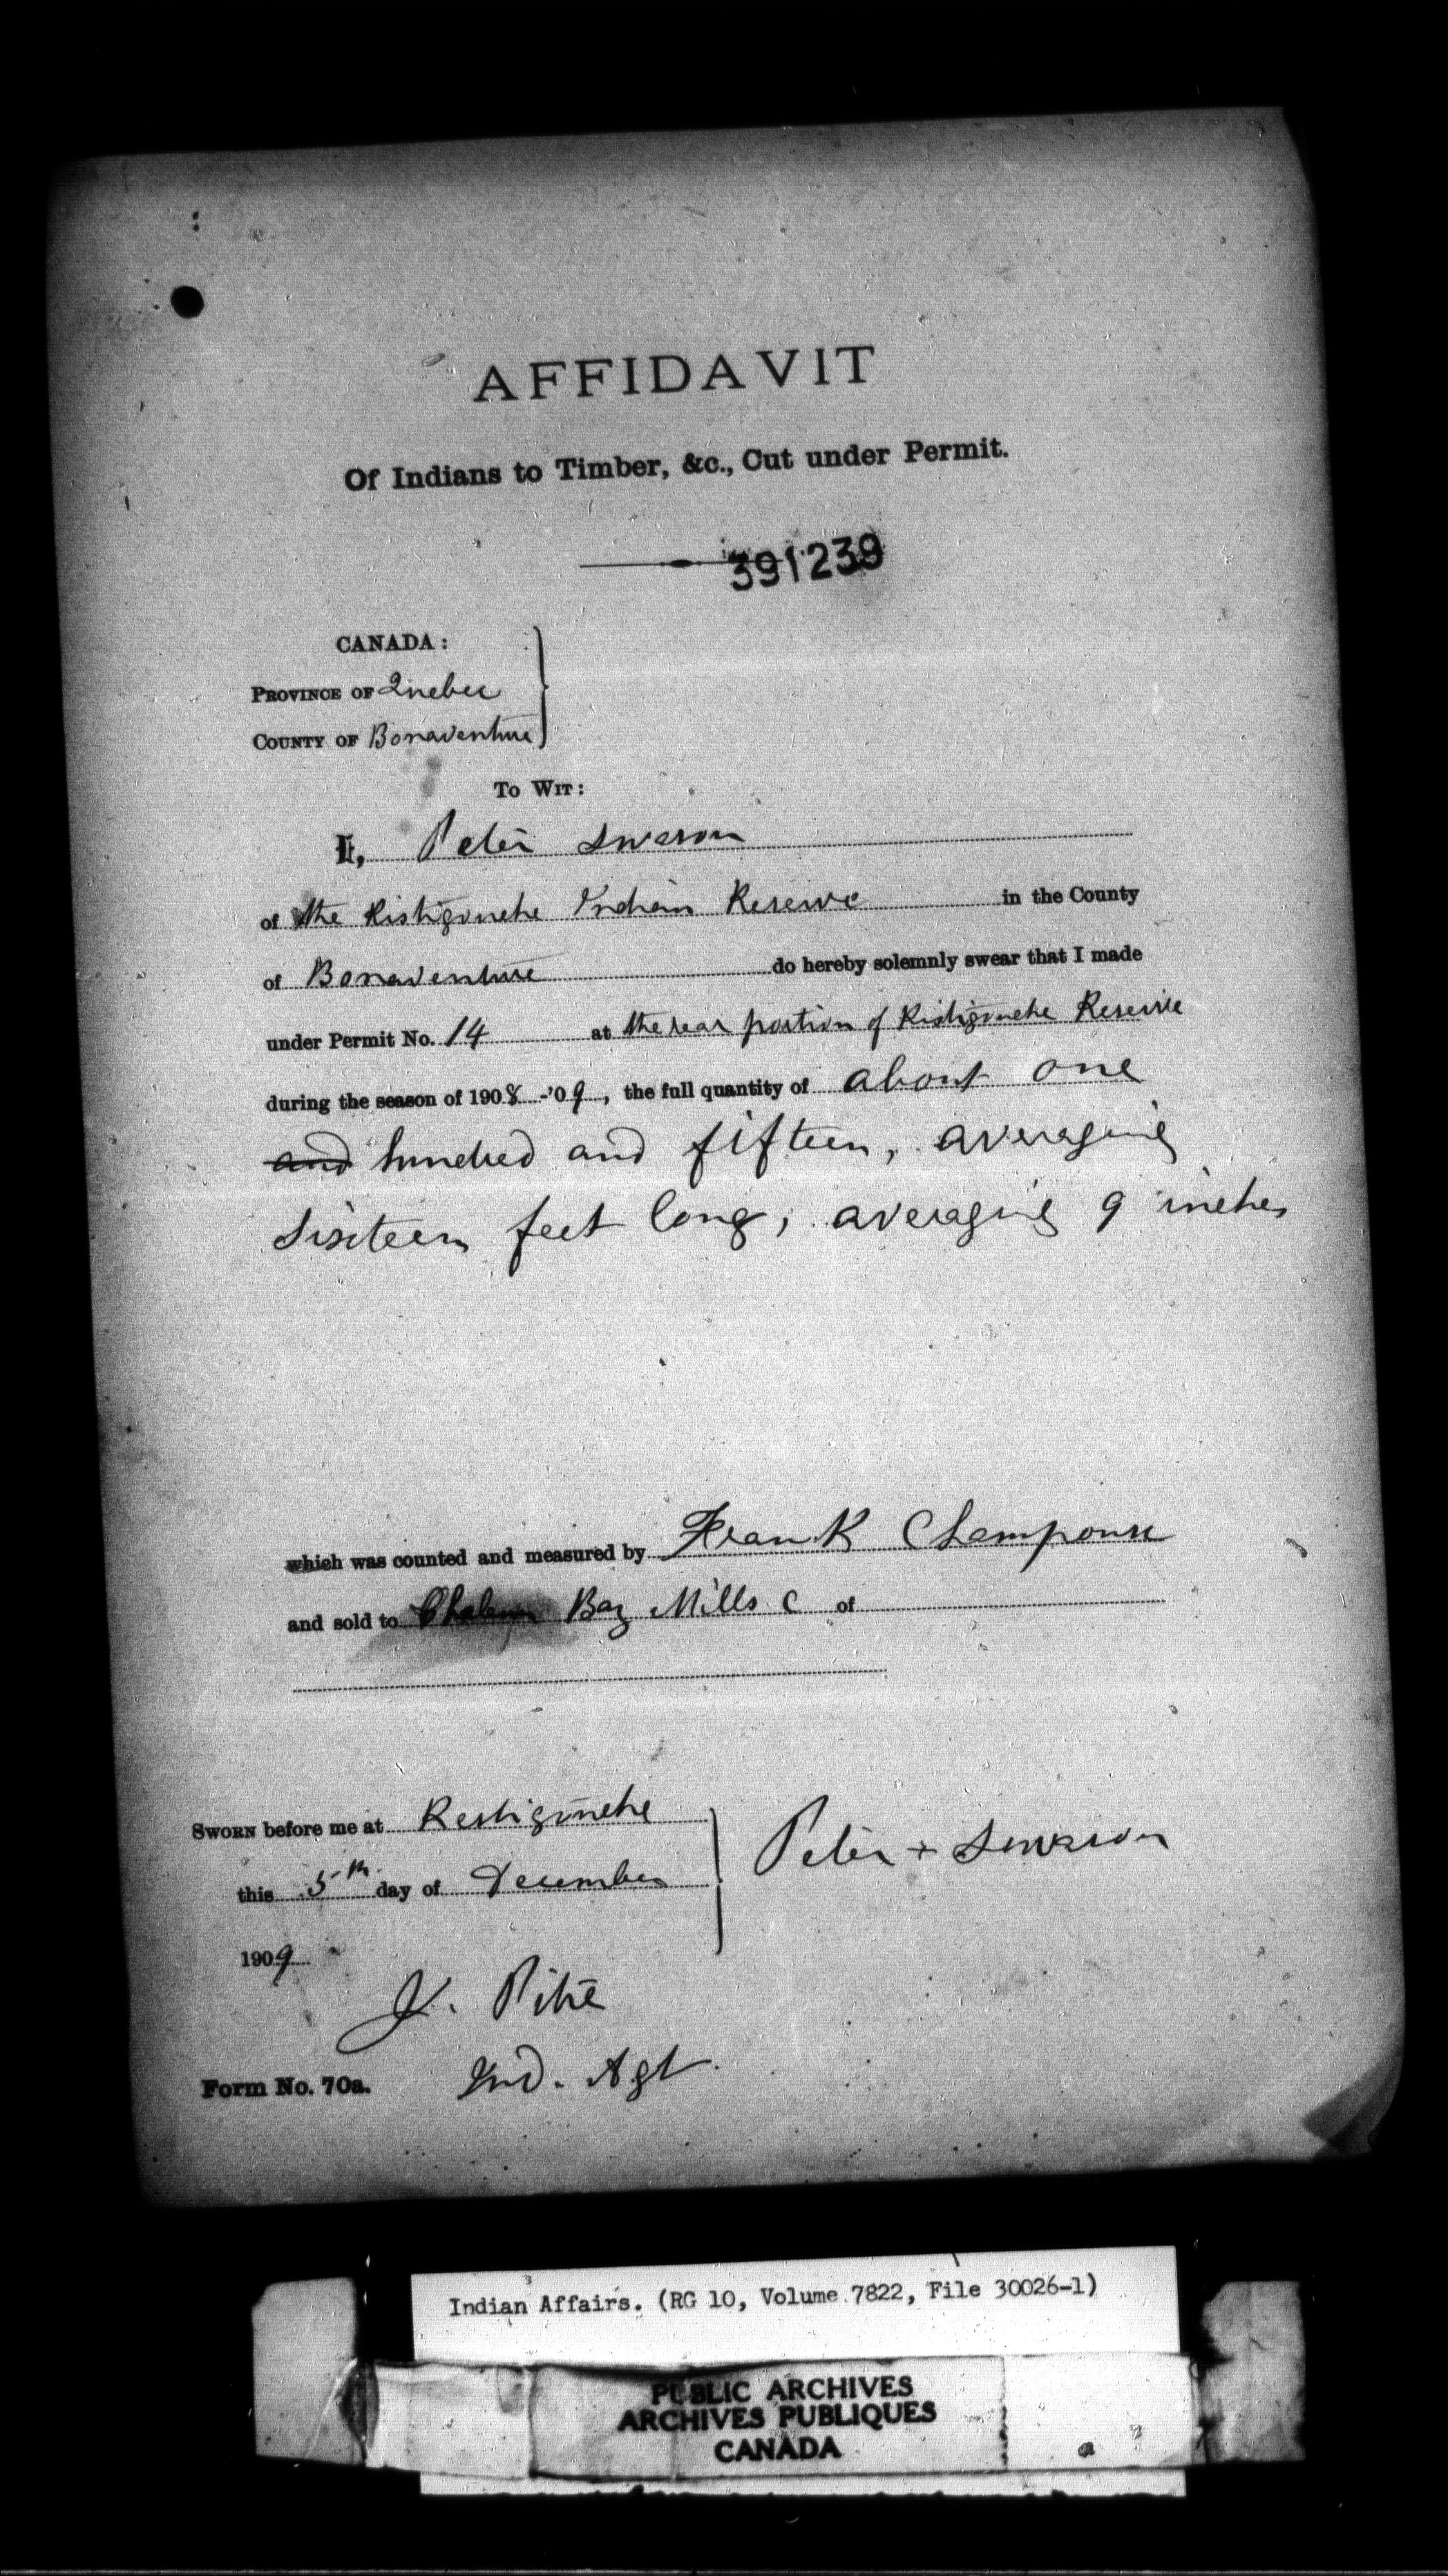 AFFIDAVIT
Of Indians to Timber, &c., Cut under Permit.
391239
CANADA:
PROVINCE OF Quebec
COUNTY OF Bonaventure
TO WIT:
I, Peter Swason
of the Ristigouche Indian Reserve in the County
of Bonaventure do hereby solemnly swear that I made
under Permit No. 14 at the rear portion of Ristigouche Reserve
during the season of 1908-'09, the full quantity of about one
and hundred and fifteen, averaging
sixteen feet long, averaging 9 inches
which was counted and measured by Frank Champoux
and sold to Chaleur Bay Mills C of
SWORN before me at Restigouche
this 5th day of December
1909
Peter + Swason
J. Pitre
Ind. Agt.
Form No. 70a.
Indian Affairs. (RG 10, Volume 7822, File 30026-1)
PUBLIC ARCHIVES
ARCHIVES PUBLIQUES
CANADA